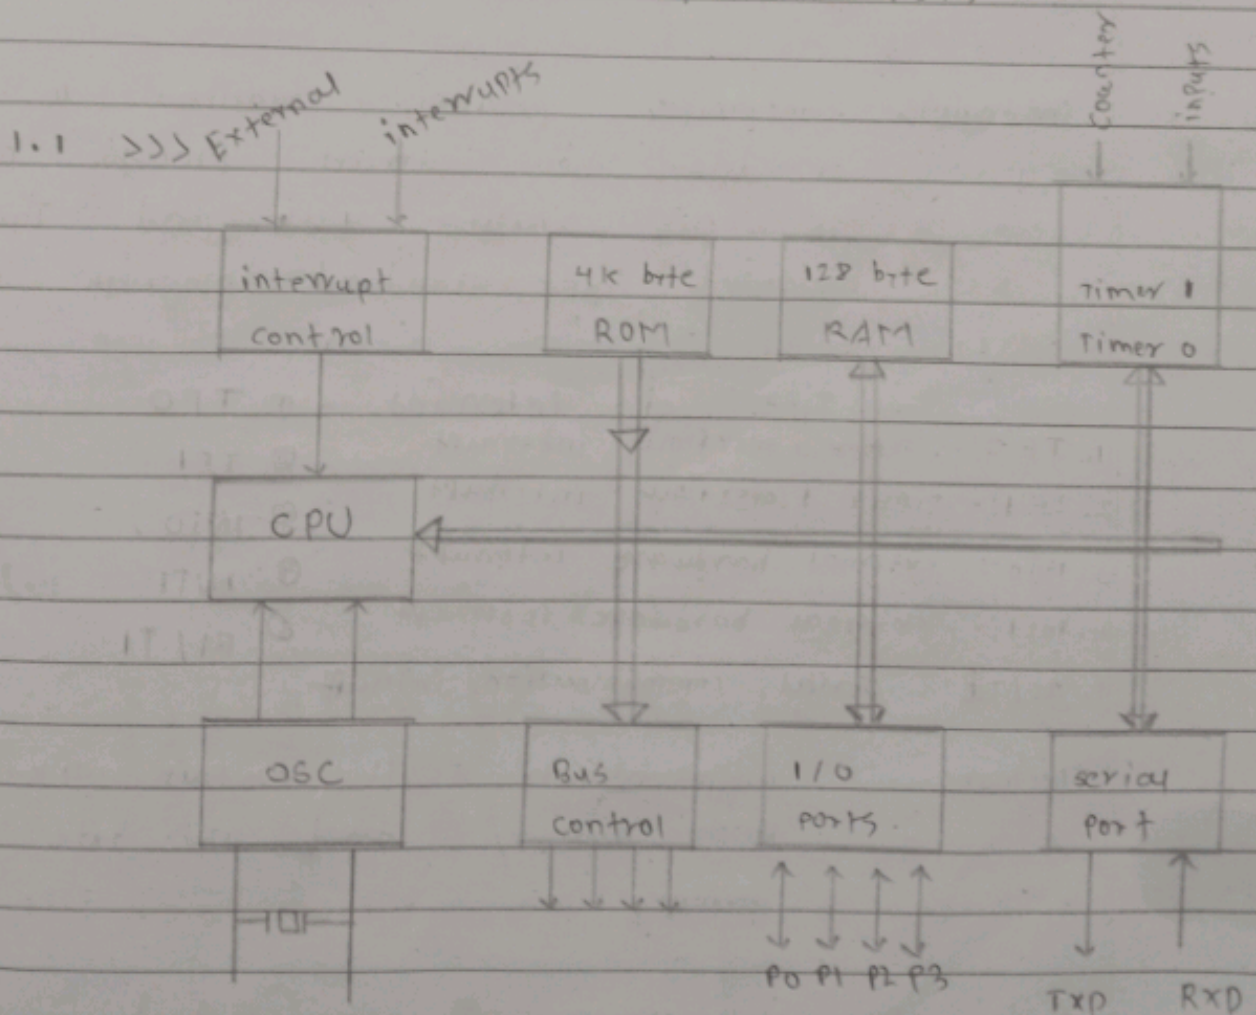 counter
inputs
1.1 >>> External interrupts
interrupt
control
4K byte
ROM
128 byte
RAM
Timer 1
Timer 0
CPU
OSC
Bus
control
I/O
ports.
serial
port
P0 P1 P2 P3
TXD RXD